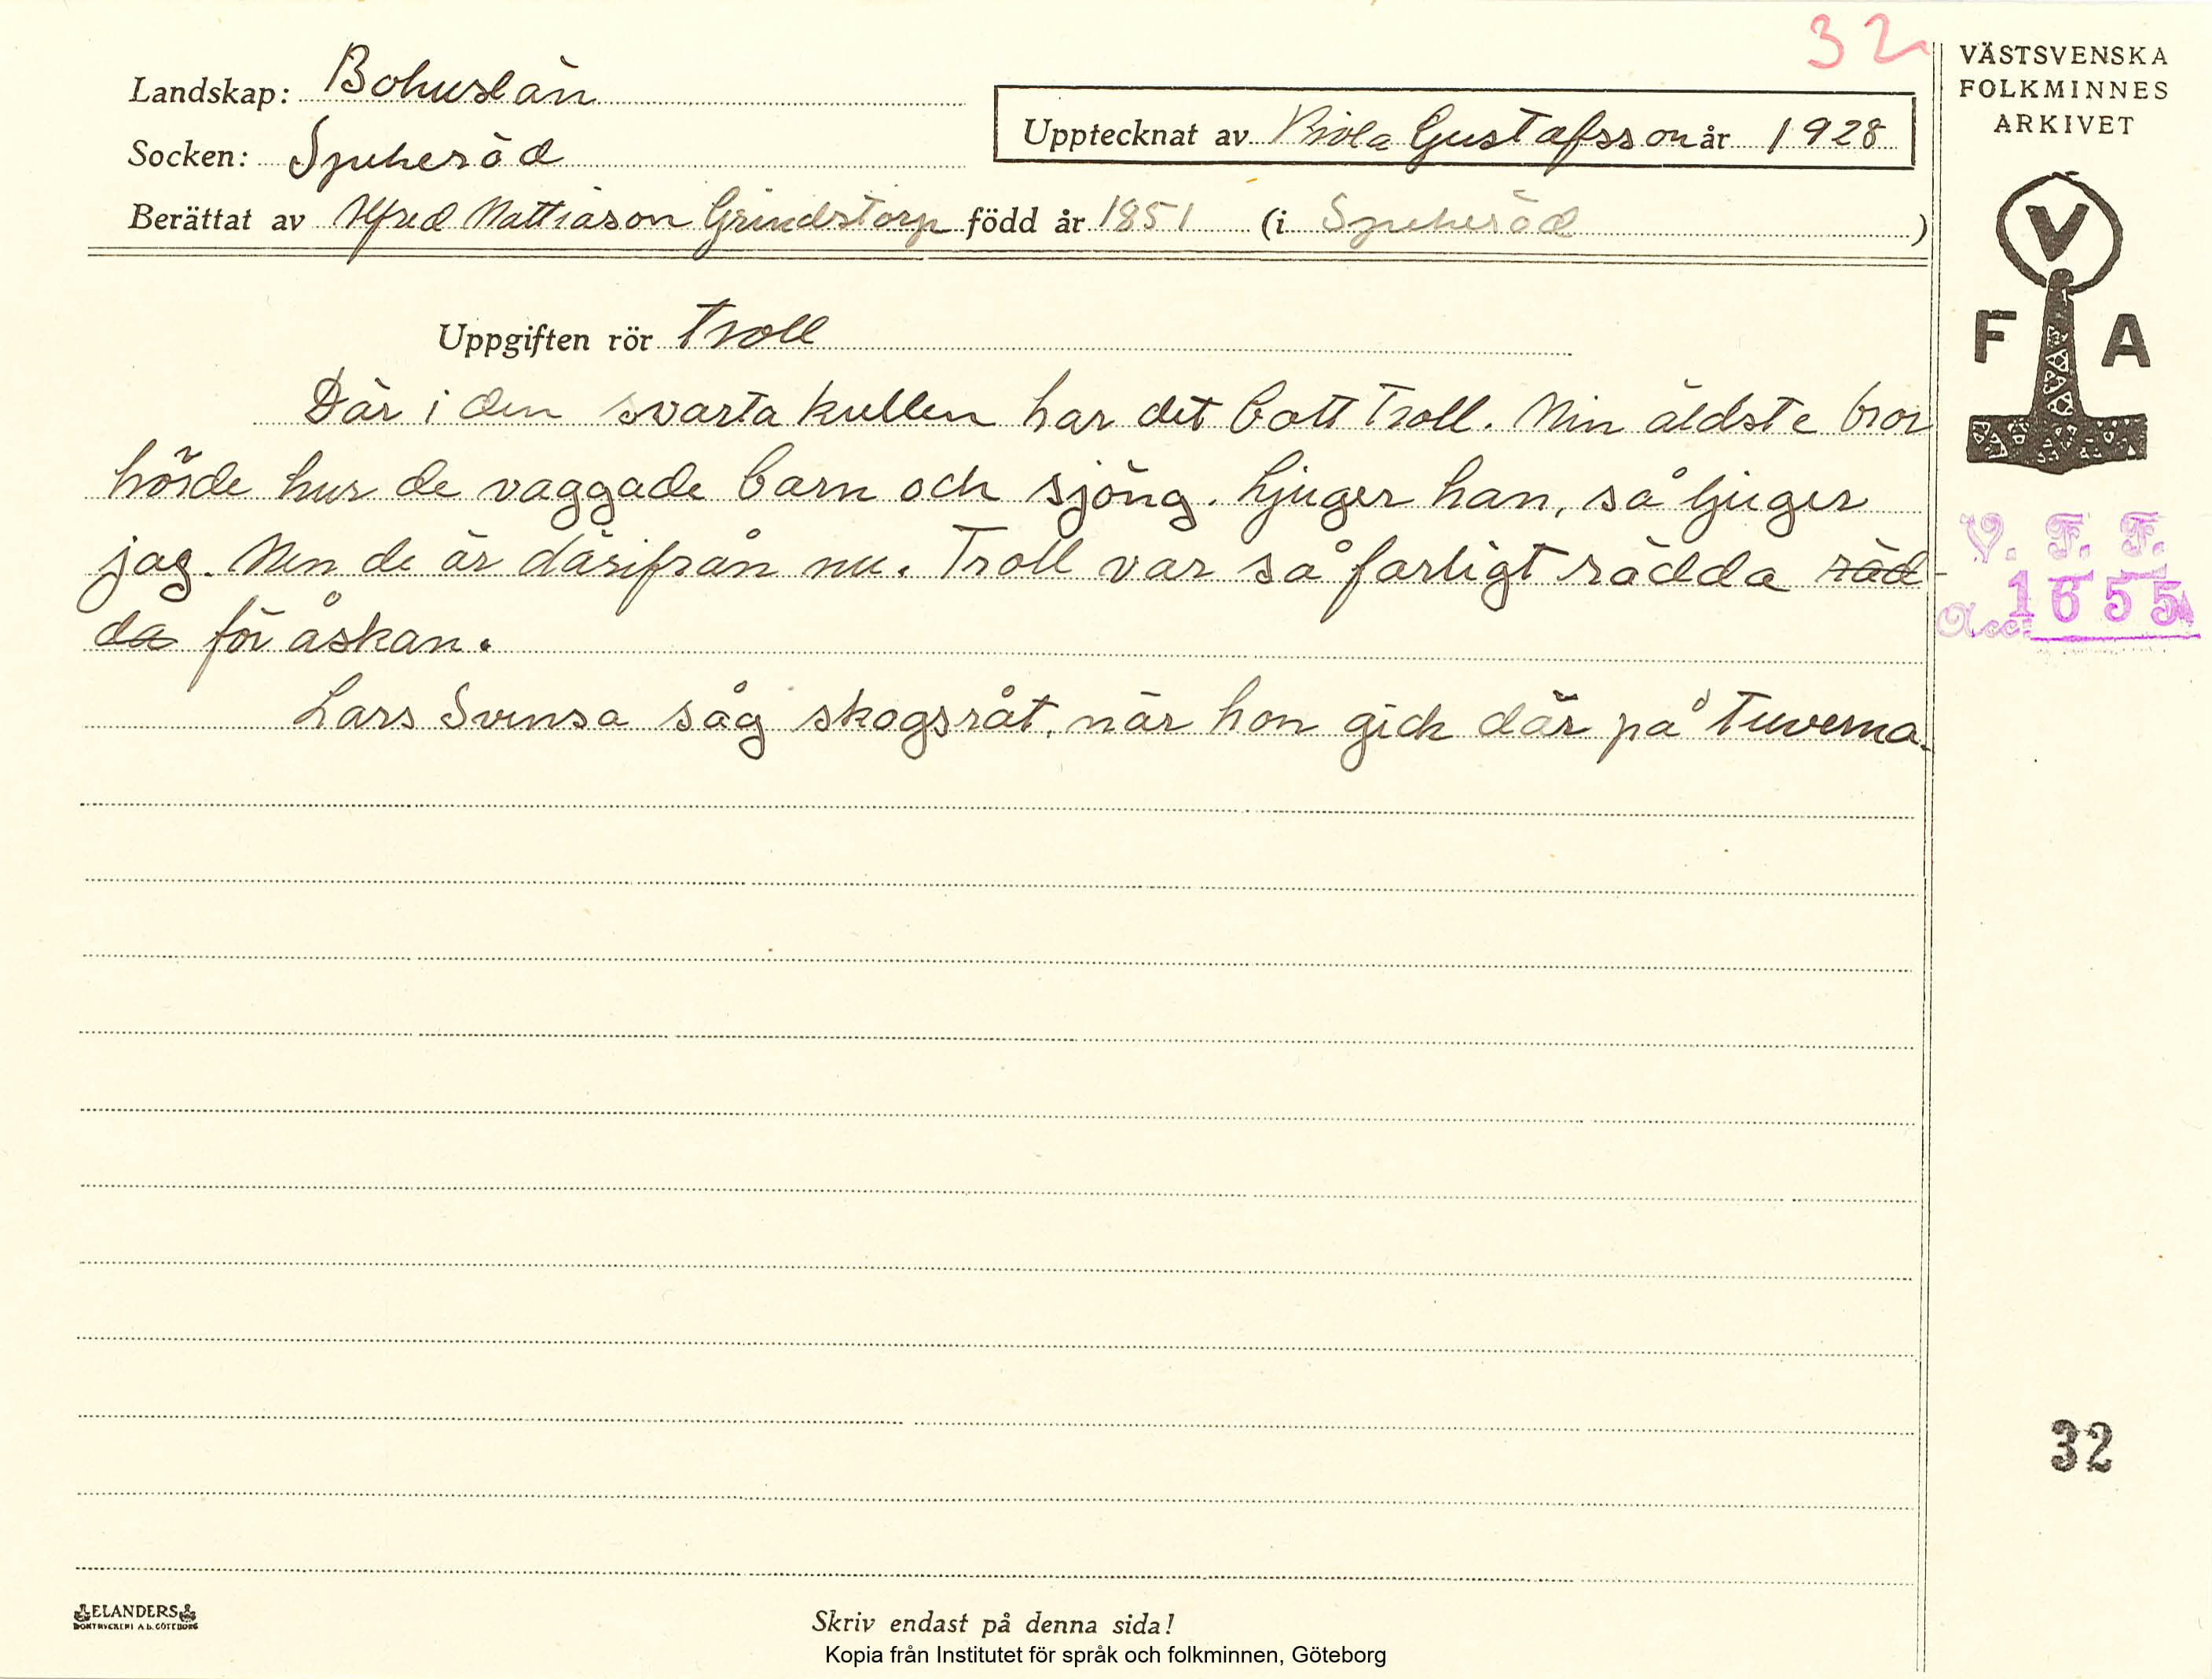 32
Landskap: Bohuslän
Socken: Spekeröd
Upptecknat av Viola Gustafsson år 1928
Berättat av Alfred Mattiason Grindstorp född år 1851 (i Spekeröd)
Uppgiften rör Troll
Där i den svarta kullen har det bott troll. Min äldste bror
hörde hur de vaggade barn och sjöng. Ljuger han, så ljuger
jag. Men de är därifrån nu. Troll var så farligt rädda räd-
da för åskan.
Lars Svensa såg skogsråt, när hon gick där på tuverna.
VÄSTSVENSKA
FOLKMINNES
ARKIVET
V
F A
V. F. F.
Acc: 1655
32
ELANDERS
BOKTRYCKERI A.B. GÖTEBORG
Skriv endast på denna sida!
Kopia från Institutet för språk och folkminnen, Göteborg